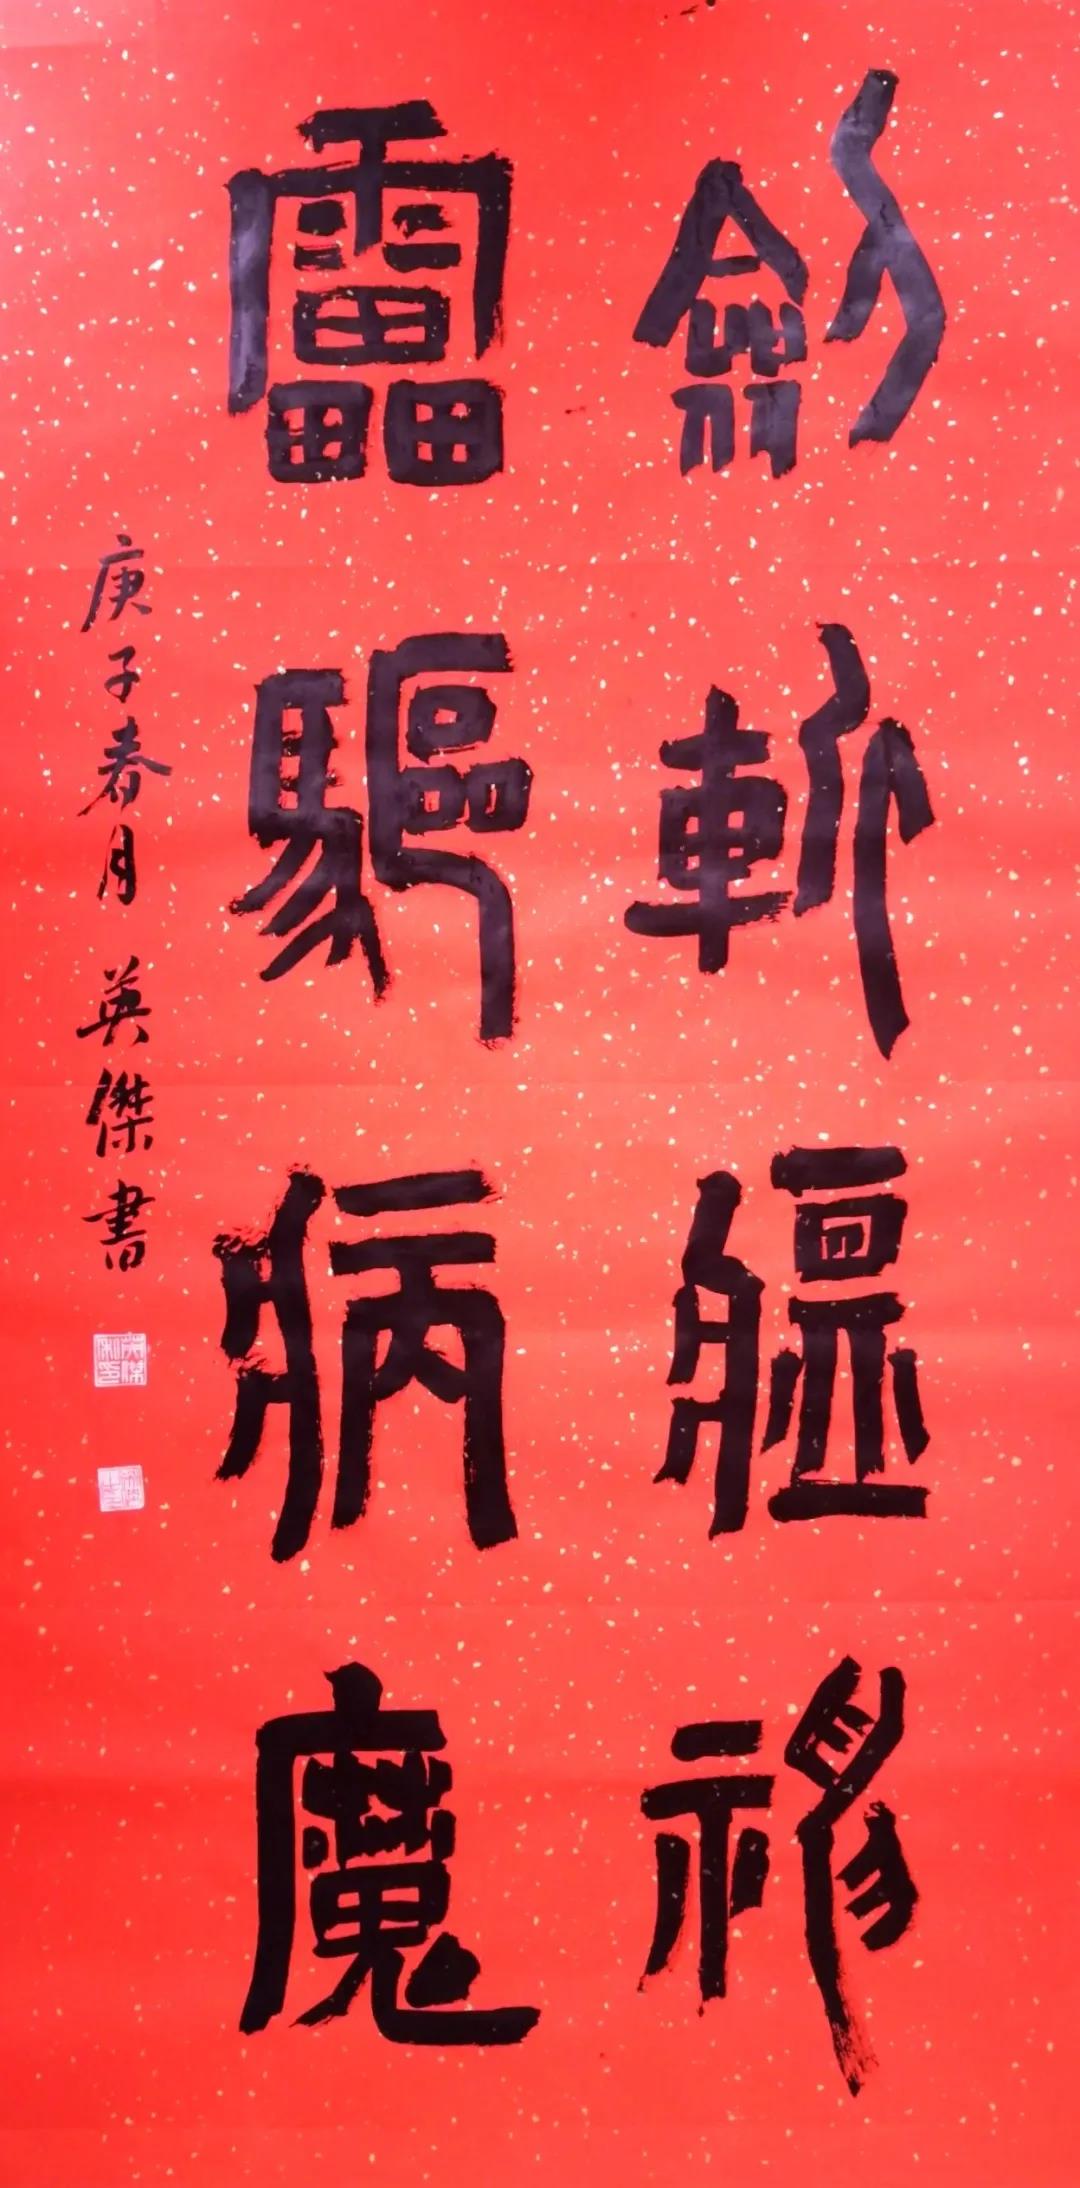 劍斬瘟神
靁驅病魔
庚子春月 英傑書
英傑私印